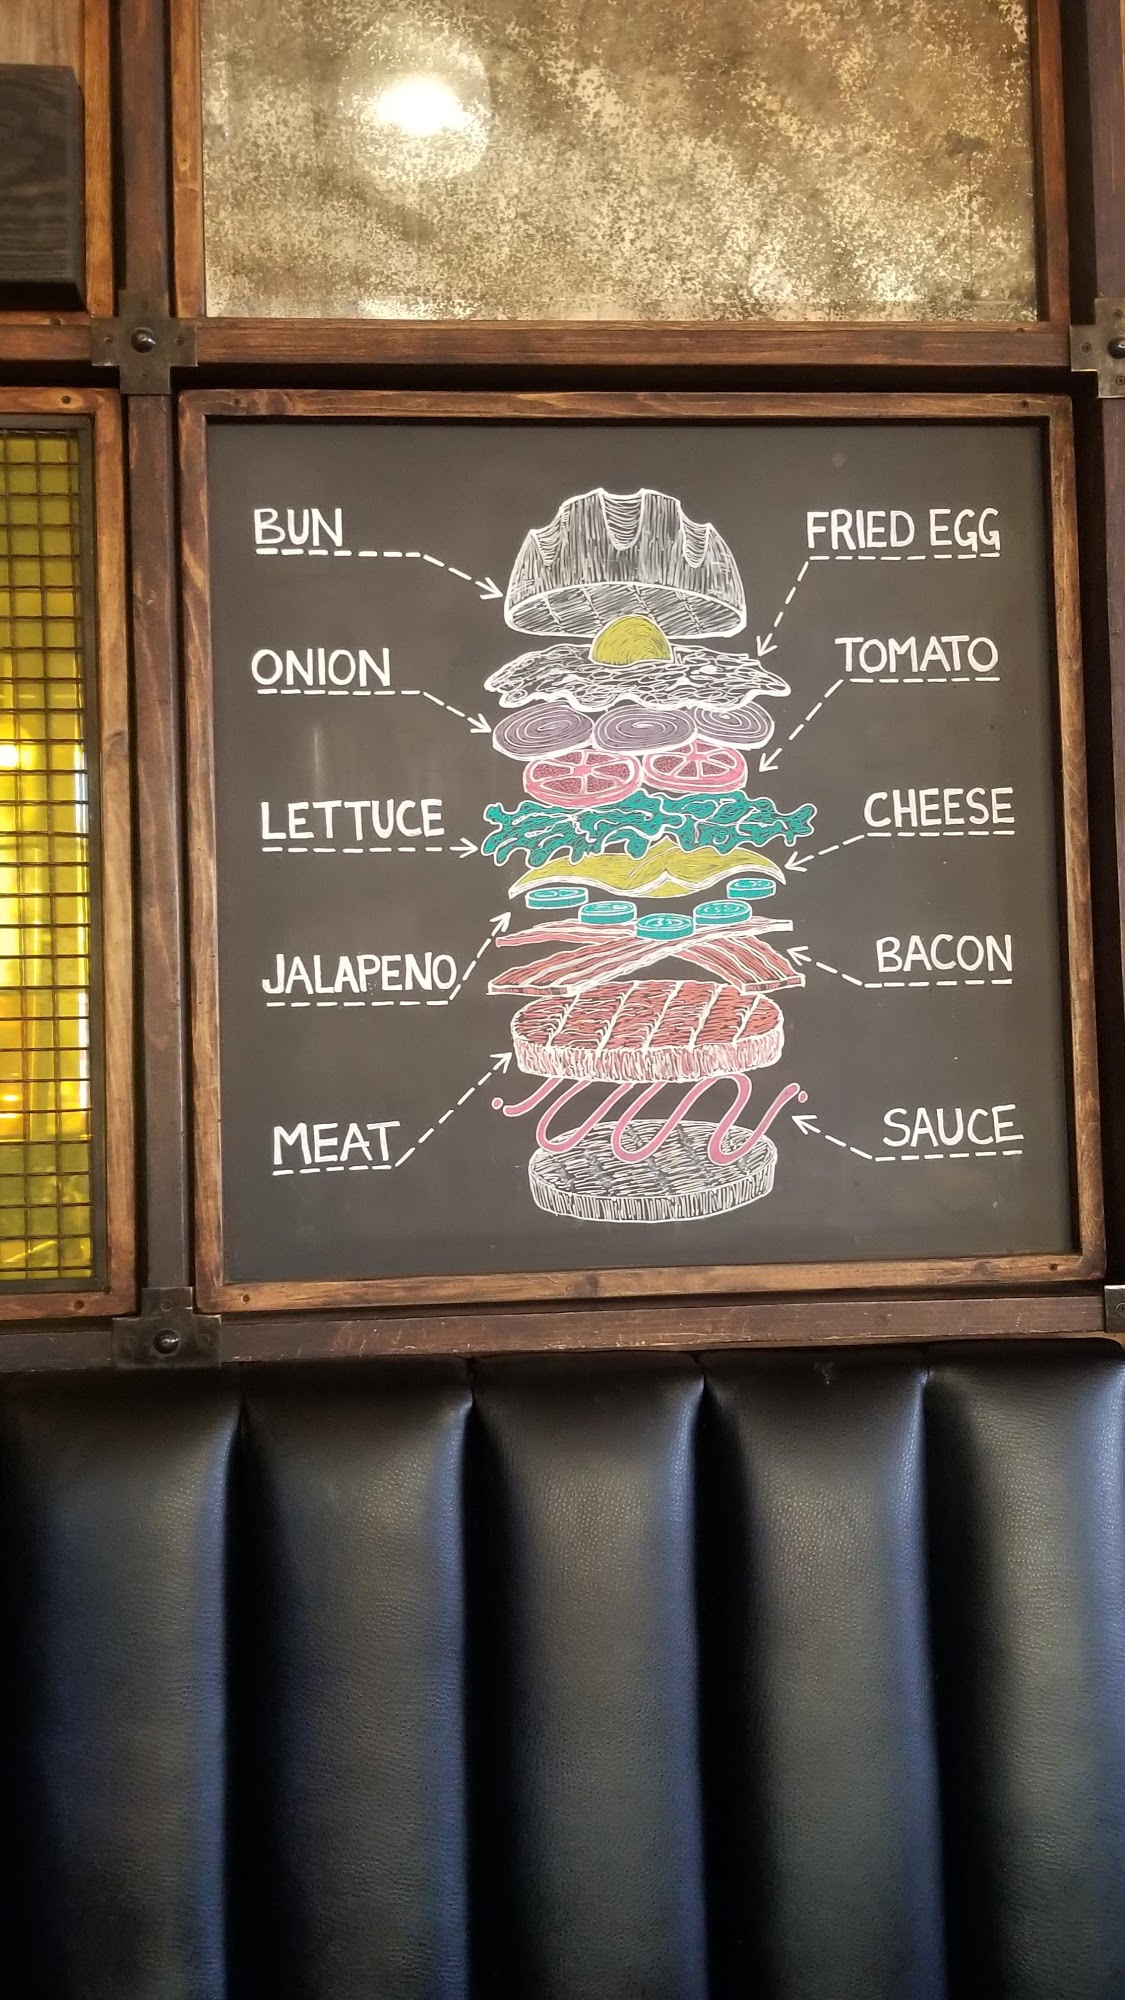 BUN
FRIED EGG
ONION
TOMATO
LETTUCE
CHEESE
JALAPENO
BACON
MEAT
SAUCE